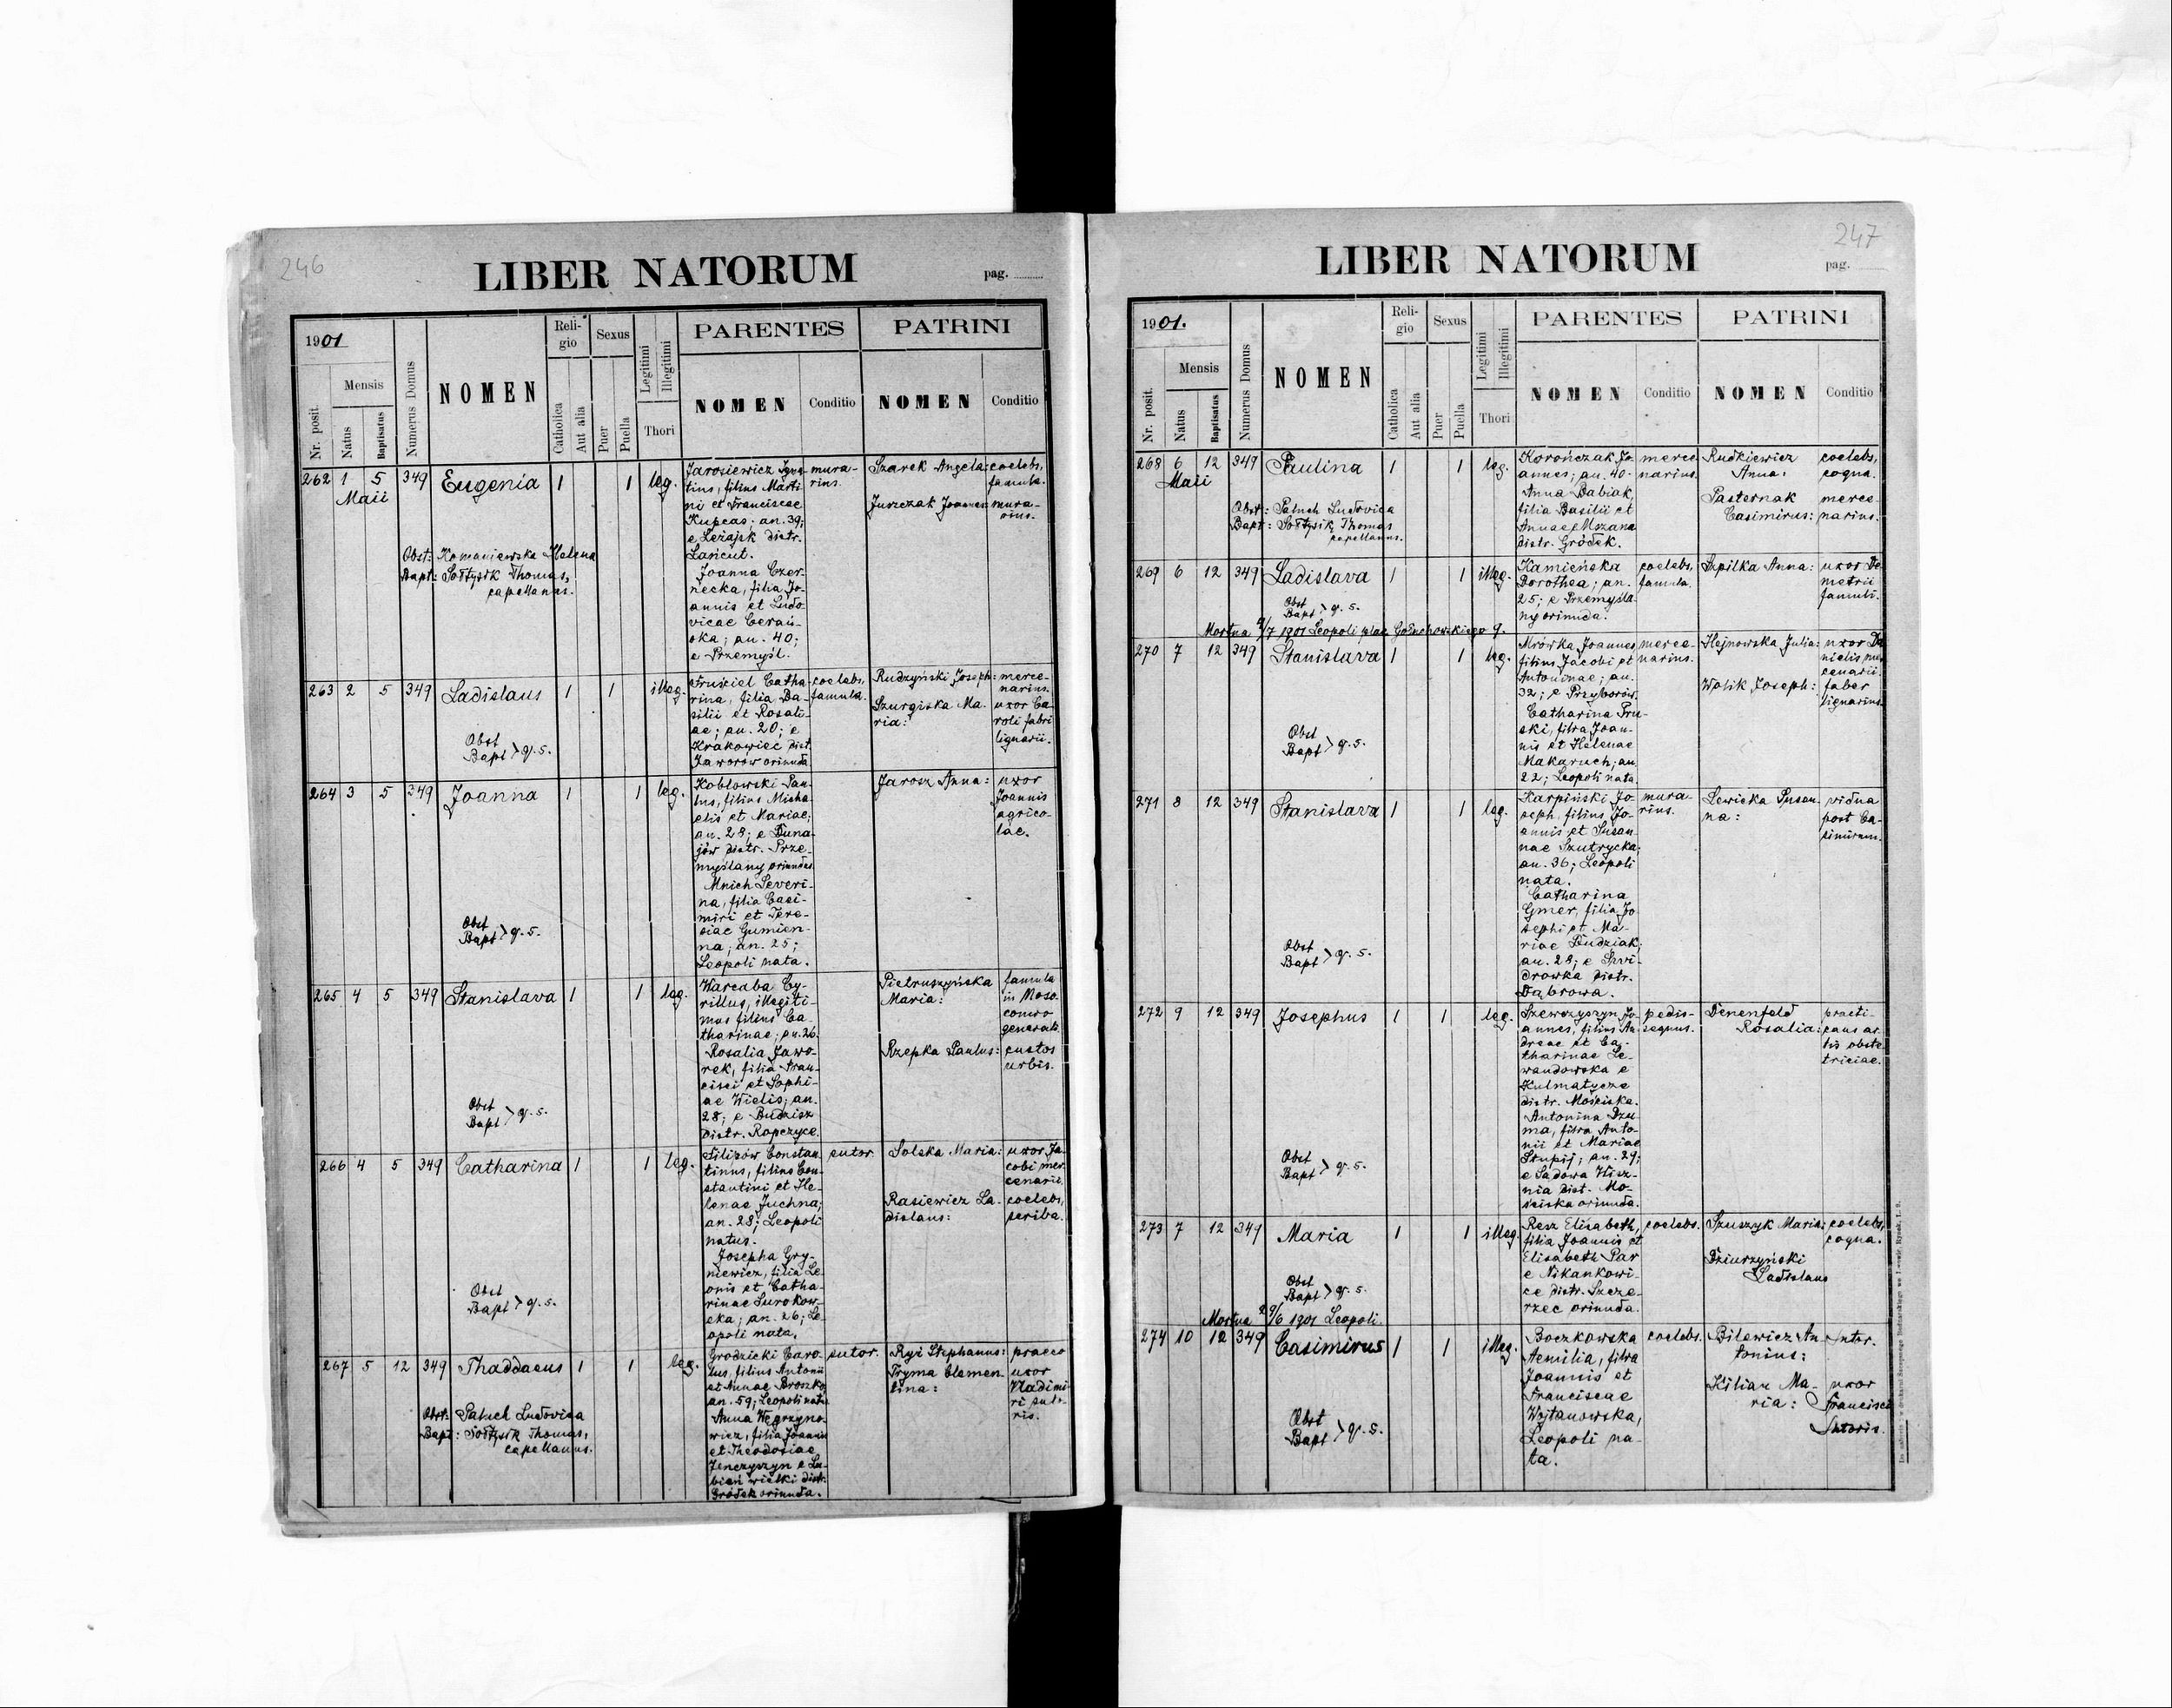 246
LIBER NATORUM
pag.
1901
Mensis
Nr. posit.
Natus
Baptisatus
Numerus Domus
NOMEN
Reli-
gio
Catholica
Aut alia
Sexus
Puer
Puella
Legitimi
Illegitimi
Thori
PARENTES
NOMEN
Conditio
PATRINI
NOMEN
Conditio
262 1 5 349 Eugenia 1 1 leg.
Maii
Obst: Komaniewska Helena
Bapt: Sołtysik Thomas,
capellanus.
Jarosiewicz Igna-
tius, filius Marti-
ni et Franciscae
Kupcas; an. 39;
e Leżajsk distr.
Łańcut.
Joanna Czer-
necka, filia Jo-
annis et Ludo-
vicae Cerań-
ska; an. 40;
e Przemyśl.
mura-
rius.
Szarek Angela:
Juszczak Joannes:
coelebs,
famula.
mura-
rius.
263 2 5 349 Ladislaus 1 1 illeg.
Obst
Bapt > q. s.
Truściel Catha-
rina, filia Ba-
silii et Rosali-
ae; an. 20; e
Krakowiec dist.
Jaworów oriunda
coelebs,
famula.
Rudzyński Joseph:
Szurgiska Ma-
ria:
merce-
narius.
uxor Ca-
roli fabri
lignarii.
264 3 5 349 Joanna 1 1 leg.
Obst
Bapt > q. s.
Kobłowski Pau-
lus, filius Micha-
elis et Mariae;
an. 28; e Duna-
jów distr. Prze-
myślany oriundus
Mnich Severi-
na, filia Casi-
miri et Tere-
siae Gumien-
na; an. 25;
Leopoli nata.
Jarosz Anna:
uxor
Joannis
agrico-
lae.
265 4 5 349 Stanislava 1 1 leg.
Obst
Bapt > q. s.
Warcaba Cy-
rillus, illegiti-
mus filius Ca-
tharinae; an. 26.
Rosalia Jawo-
rek, filia Fran-
cisci et Sophi-
ae Wielis; an.
28; e Budzisz
distr. Ropczyce.
Pietruszyńska
Maria:
Rzepka Paulus:
famula
in Noso-
comio
generali.
custos
urbis.
266 4 5 349 Catharina 1 1 leg.
Obst
Bapt > q. s.
Filizów Constan-
tinus, filius Con-
stantini et He-
lenae Juchna;
an. 28; Leopoli
natus.
Josepha Gry-
niewicz, filia Le-
onis et Catha-
rinae Surokow-
ska; an. 26; Le-
opoli nata.
sutor.
Solska Maria:
Rasiewicz La-
dislaus:
uxor Ja-
cobi mer-
cenarii.
coelebs,
scriba.
267 5 12 349 Thaddaeus 1 1 leg.
Obst: Paluch Ludovica
Bapt: Sołtysik Thomas,
capellanus.
Grodzicki Caro-
lus, filius Antonii
et Annae Broszko
an. 59; Leopoli natus
Anna Węgrzyno-
wicz, filia Joannis
et Theodosiae
Jenczyszyn e Lu-
bień wielki distr.
Gródek oriunda.
sutor.
Ryś Stephanus:
Pryma Clemen-
tina:
praeco
uxor
Vladimi-
ri suto-
ris.
247
LIBER NATORUM
pag.
1901.
Mensis
Nr. posit.
Natus
Baptisatus
Numerus Domus
NOMEN
Reli-
gio
Catholica
Aut alia
Sexus
Puer
Puella
Legitimi
Illegitimi
Thori
PARENTES
NOMEN
Conditio
PATRINI
NOMEN
Conditio
268 6 12 349 Paulina 1 1 leg.
Maii
Obst: Paluch Ludovica
Bapt: Sołtysik Thomas
capellanus.
Korończak Jo-
annes; an. 40.
Anna Babiak,
filia Basilii et
Annae; Mszana
distr. Gródek.
merce-
narius.
Rudkiewicz
Anna:
Pasternak
Casimirus:
coelebs,
cogna.
merce-
narius.
269 6 12 349 Ladislava 1 1 illeg.
Obst
Bapt > q. s.
Mortua 4/7 1901 Leopoli plac Gołuchowskiego 9.
Kamieńska
Dorothea; an.
25; e Przemyśla-
ny oriunda.
coelebs,
famula.
Szpilka Anna:
uxor De-
metrii
famuli.
270 7 12 349 Stanislava 1 1 leg.
Obst
Bapt > q. s.
Mrówka Joannes
filius Jacobi et
Antoninae; an.
32; e Przyborów.
Catharina Pru-
ski, filia Joan-
nis et Helenae
Makaruch; an.
22; Leopoli nata
merce-
narius.
Hejnowska Julia:
Wolik Joseph:
uxor Da-
nielis mer-
cenarii.
faber
lignarius.
271 8 12 349 Stanislava 1 1 leg.
Obst
Bapt > q. s.
Karpiński Jo-
seph, filius Jo-
annis et Susan-
nae Szutrycka;
an. 36; Leopoli
nata.
Catharina
Gmer, filia Jo-
sephi et Ma-
riae Dudziak;
an. 28; e Świ-
drowka distr.
Dąbrowa.
mura-
rius.
Lewicka Susan-
na:
vidua
post Ca-
simirum.
272 9 12 349 Josephus 1 1 leg.
Obst
Bapt > q. s.
Szewczyszyn Jo-
annes, filius An-
dreae et Ca-
tharinae Le-
wandowska e
Kulmatycze
distr. Mościska.
Antonina Dzu-
ma, filia Anto-
nii et Mariae
Stupij; an. 29;
e Sądowa Wisz-
nia dist. Mo-
ściska oriunda.
pedis-
sequus.
Denenfeld
Rosalia:
practi-
cans ar-
tis obste-
triciae.
273 7 12 349 Maria 1 1 illeg.
Obst
Bapt > q. s.
Mortua 29/6 1901 Leopoli.
Resz Elisabeth,
filia Joannis et
Elisabeth Par
e Nikankowi-
ce distr. Szcze-
rzec oriunda.
coelebs.
Szuszyk Maria:
Dziurzyński
Ladislaus
coelebs,
cogna.
274 10 12 349 Casimirus 1 1 illeg.
Obst
Bapt > q. s.
Boczkowska
Aemilia, filia
Joannis et
Franciscae
Wojtanowska,
Leopoli na-
ta.
coelebs.
Bilewicz An-
tonius:
Kilian Ma-
ria:
sutor.
uxor
Francisci
Sutoris.